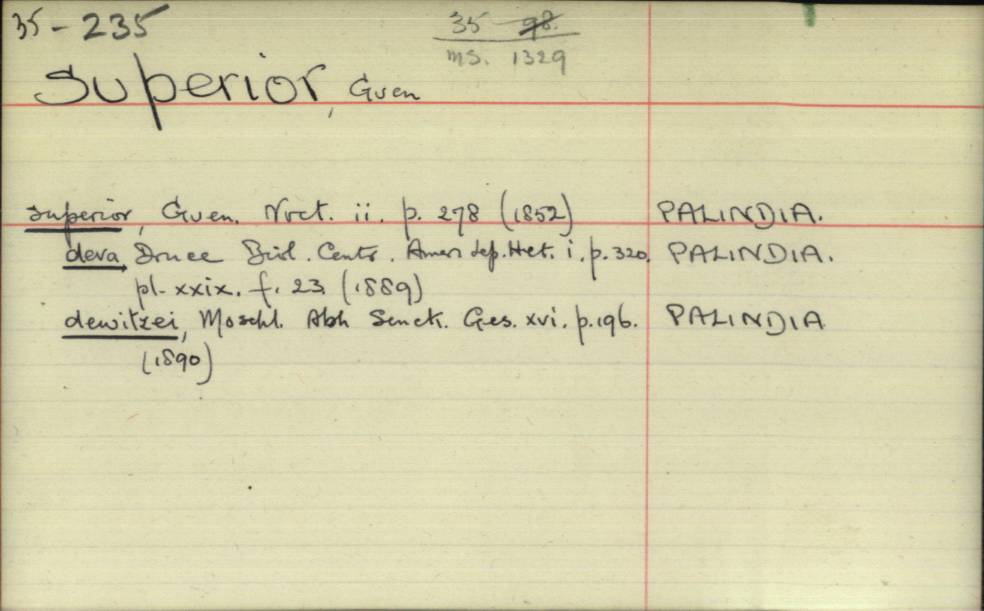 35-235
35 98.
ms. 1329
Superior, Guen
superior, Guen. Noct. ii. p. 278 (1852) PALINDIA.
deva, Druce Biol. Centr. Amer. Lep. Het. i. p. 320. PALINDIA.
pl. xxix. f. 23 (1889)
dewitzei, Moschl. Abh Senck. Ges. xvi. p. 196. PALINDIA
(1890)